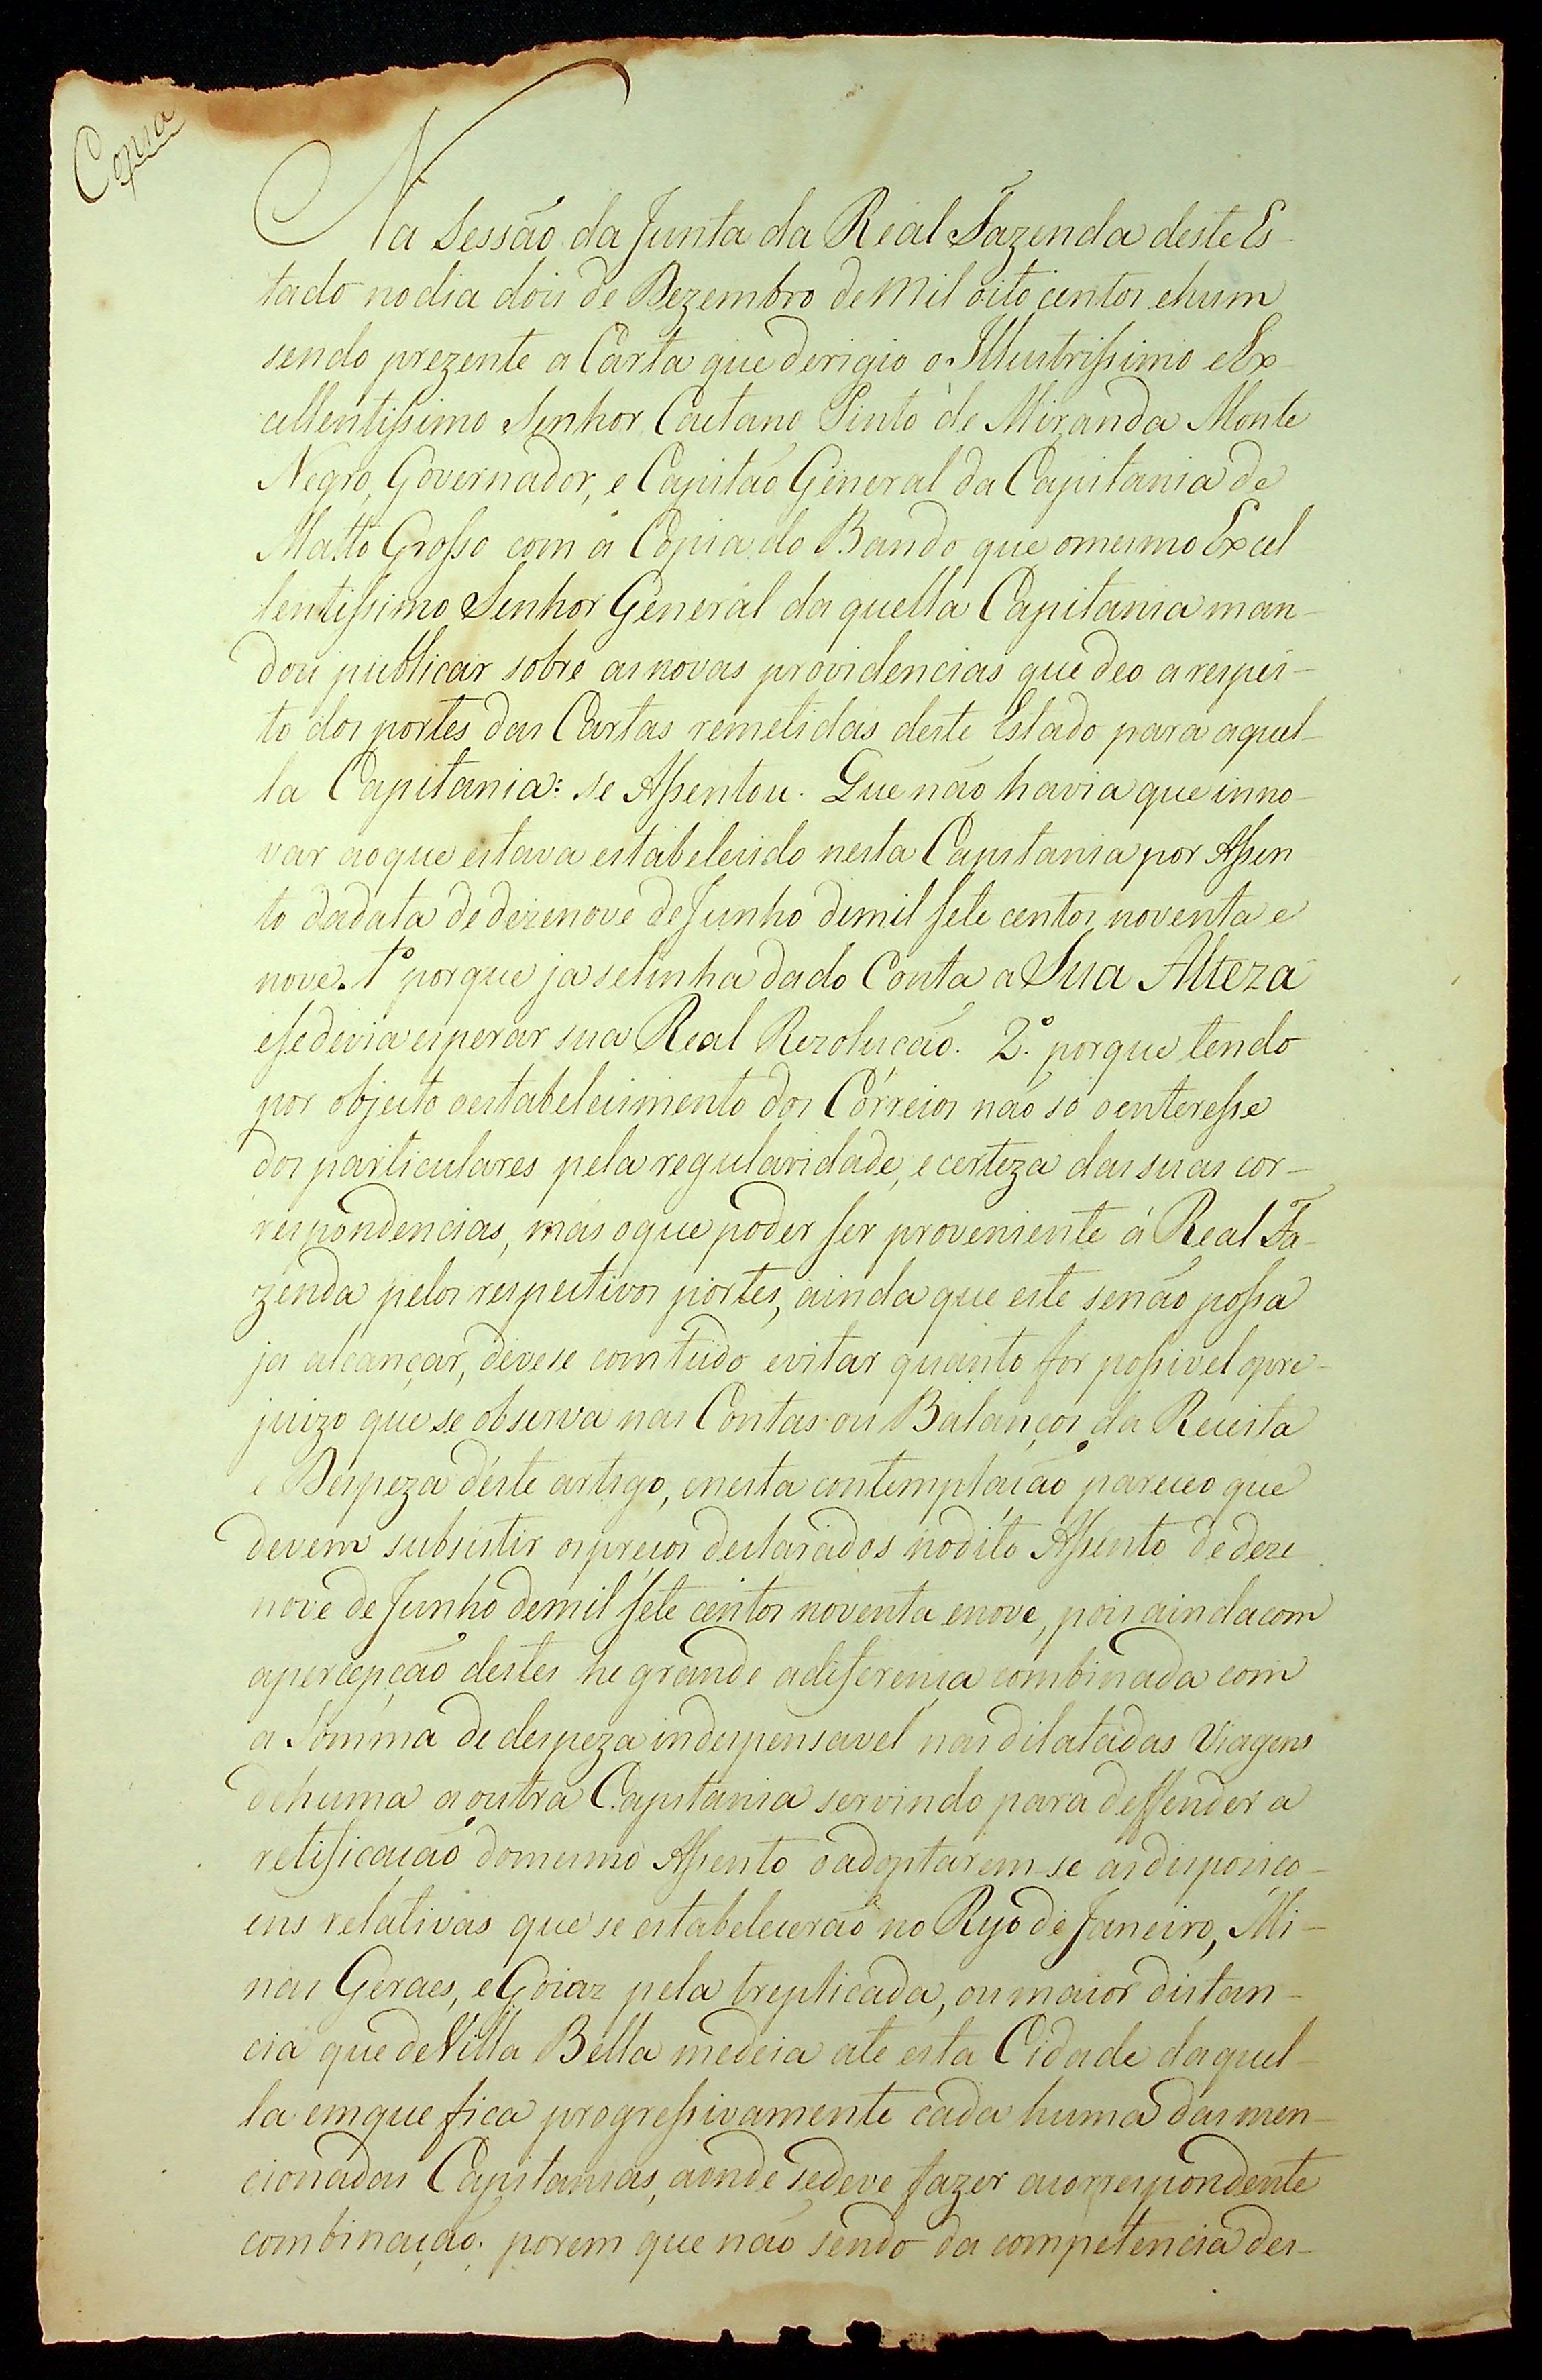 Copia
Na Sessão da Junta da Real Fazenda deste Es-
tado no dia dois de Dezembro de Mil oito centos e hum
sendo prezente a Carta que derigio o Illustrissimo e Ex-
cellentissimo Senhor Caetano Pinto de Miranda Monte
Negro, Governador, e Capitão General da Capitania de
Matto Grosso com a Copia do Bando que o mesmo Excel
lentissimo Senhor General daquella Capitania man-
dou publicar sobre as novas providencias que deo a respei-
to dos portes das Cartas remetidas deste Estado para aquel-
la Capitania: se Assentou. Que não havia que inno-
var ao que estava estabelesido nesta Capitania por Assen
to da data de dezenove de Junho de mil sete centos noventa e
nove. 1º porque ja se tinha dado Conta a Sua Alteza
e se devia esperar sua Real Rezolucão. 2º porque tendo
por objecto o estabelecimento dos Córreios não só o enteresse
dos particulares pela regularidade, e certeza das suas cor-
respondencias, mas o que poder ser proveniente á Real Fa-
zenda pelos respectivos portes, ainda que este se não possa
ja alcançar, devese com tudo evitar quanto for possivel o pre-
juizo que se observa nas Contas ou Balanços da Receita
e Despeza déste artigo, e nesta contemplação pareceo que
devem subsistir os preços declarados no dito Assento de deze
nove de Junho de mil sete centos noventa e nove, pois ainda com
a percepção destes he grande a diferença combinada com
a Somma de despeza indespensavel nas dilatadas Viagens
de huma a outra Capitania servindo para deffender a
retificação do mesmo Assento o adoptarem-se as disposico-
ens relativas que se estabelecerão no Ryo de Janeiro, Mi-
nas Geraes, e Goiaz pela treplicada, ou maior distan-
cia que de Villa Bella medeia ate esta Cidade daquel-
la em que fica progressivamente cada huma das men-
cionadas Capitanias, aonde se deve fazer a correspondente
combinação: porem que não sendo da competencia des-